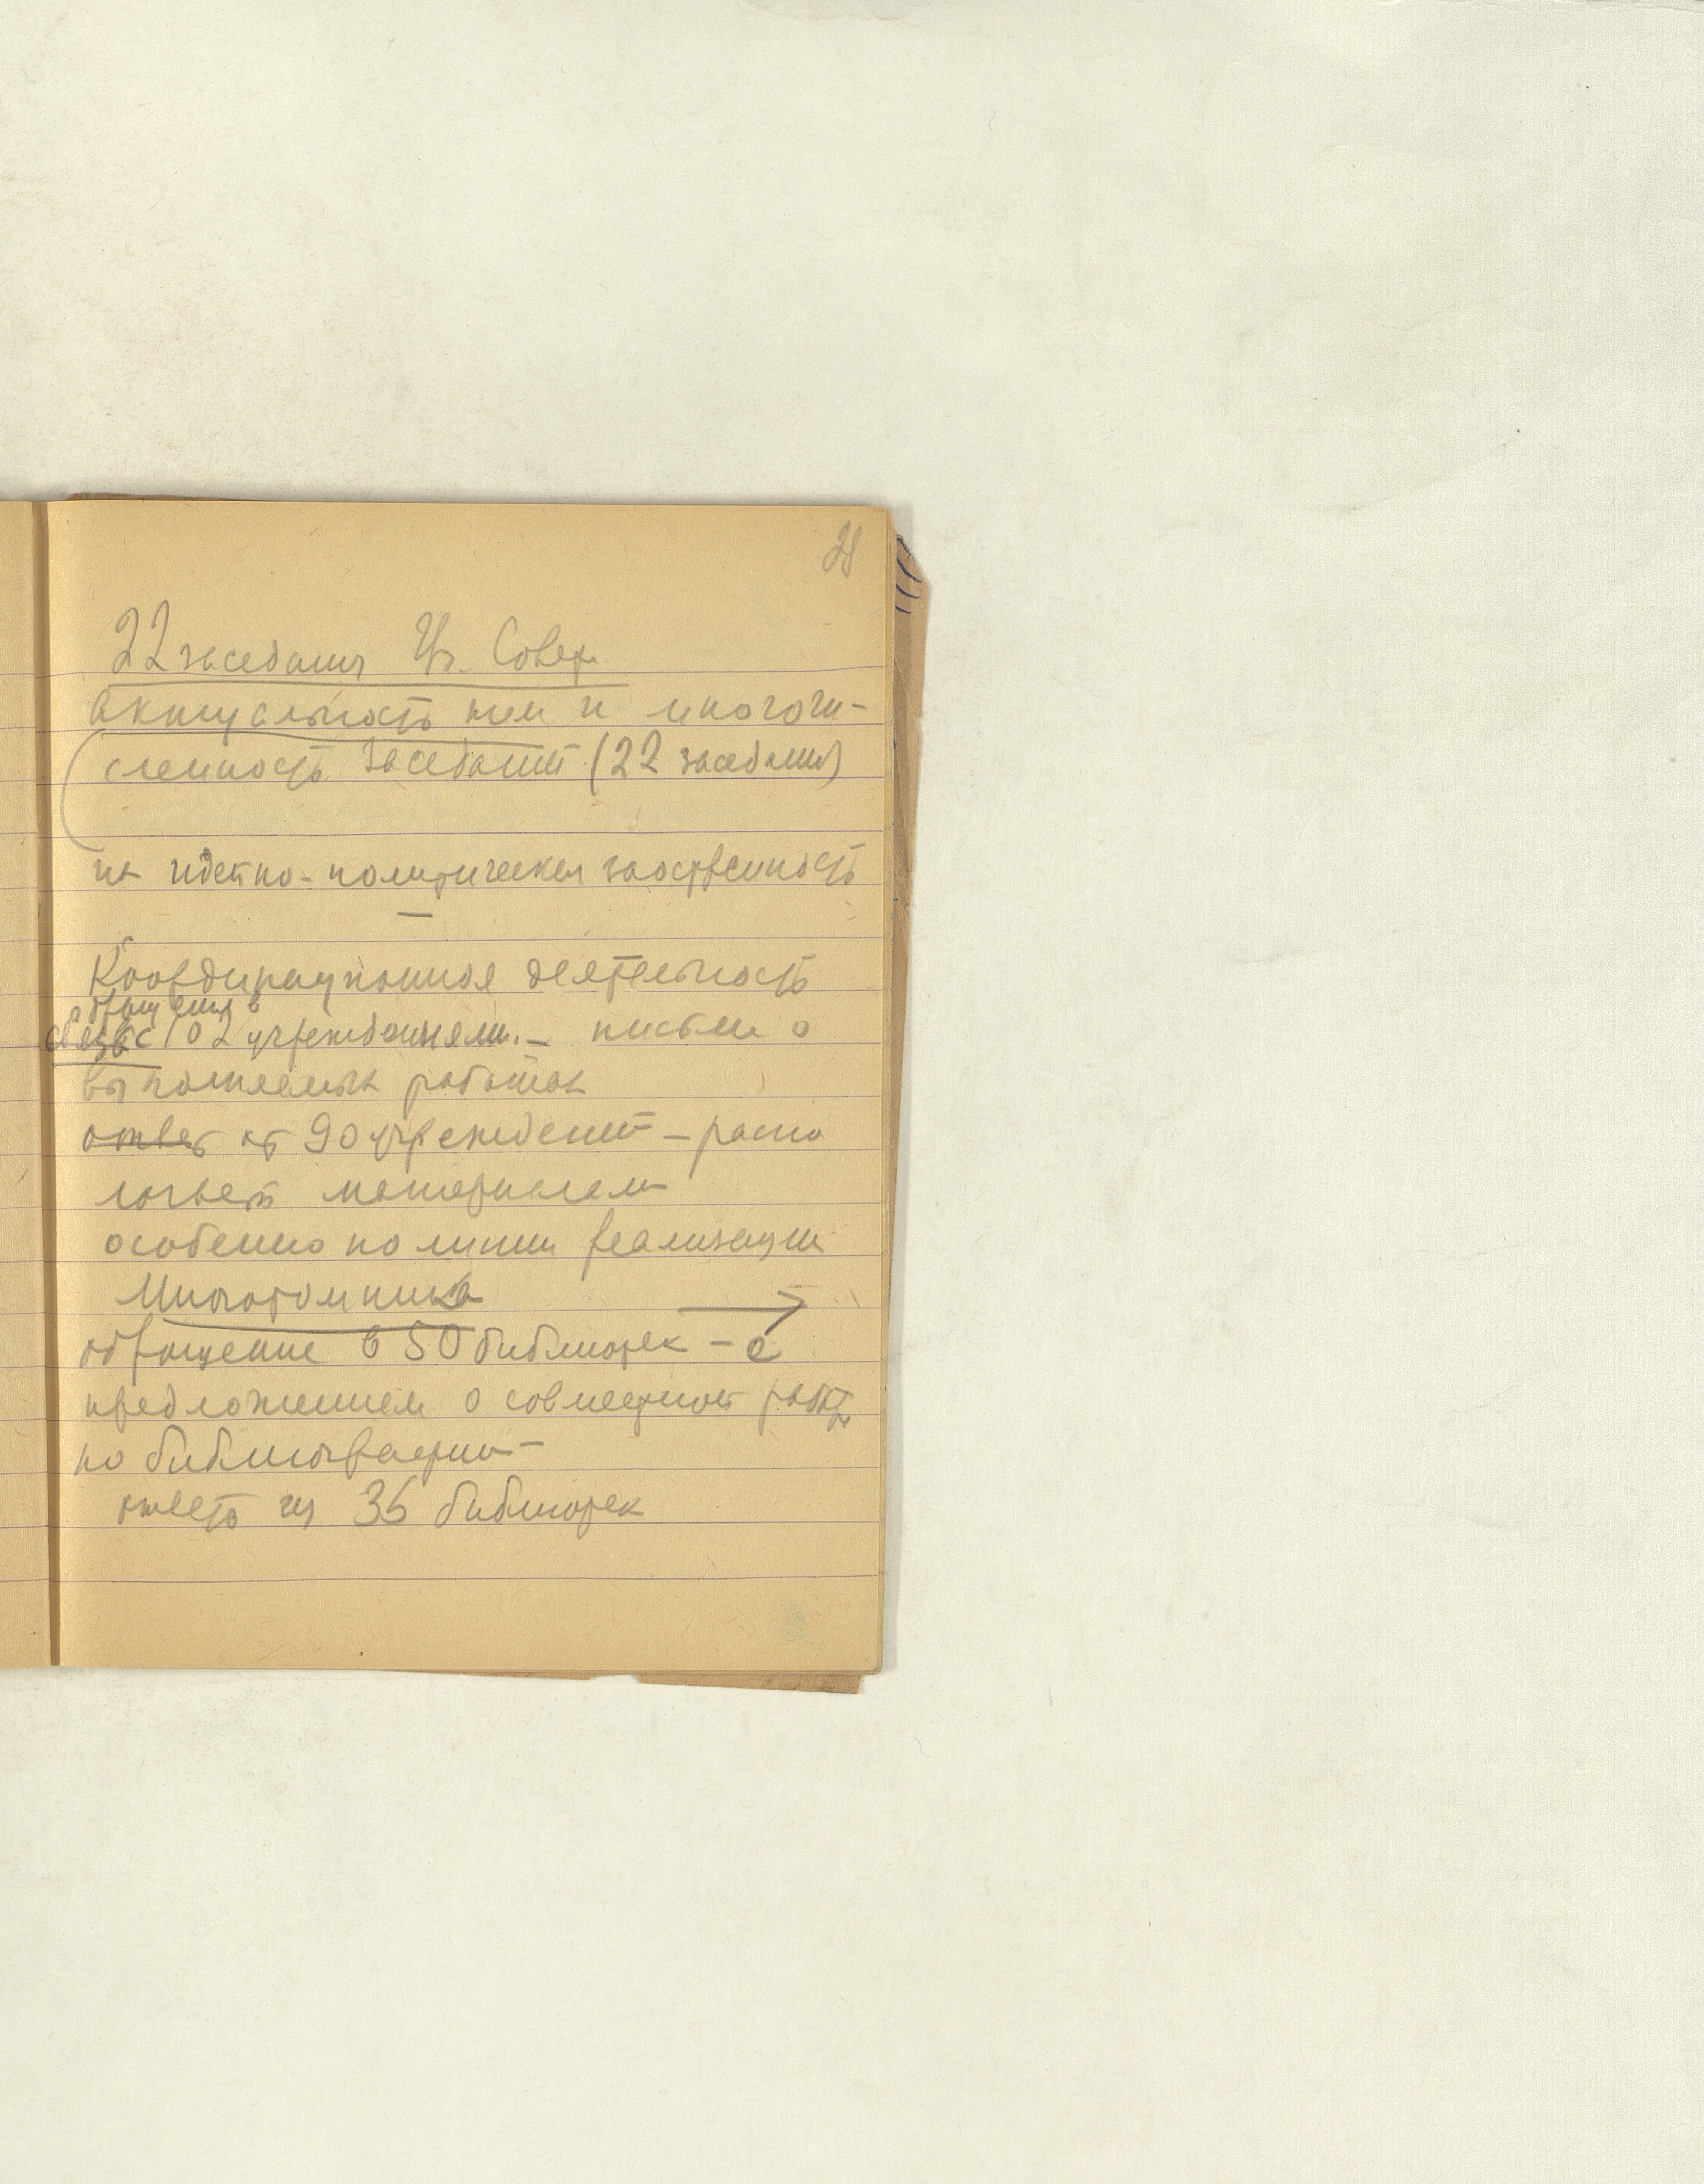 28
22 заседания Уч. Совета
актуальность тем и многочи-
сленность заседаний (22 заседания)
их идейно-политическая заостренность
—
Координационная деятельность
обращения в
связь с 102 учреждениями. – письма о
выполняемых работах
ответ от 90 учреждений – распо
лагает материалами
особенно по линии реализации
Многотомника
обращение в 50 библиотек – с
предложением о совместной работе
по библиографии –
ответ из 36 библиотек